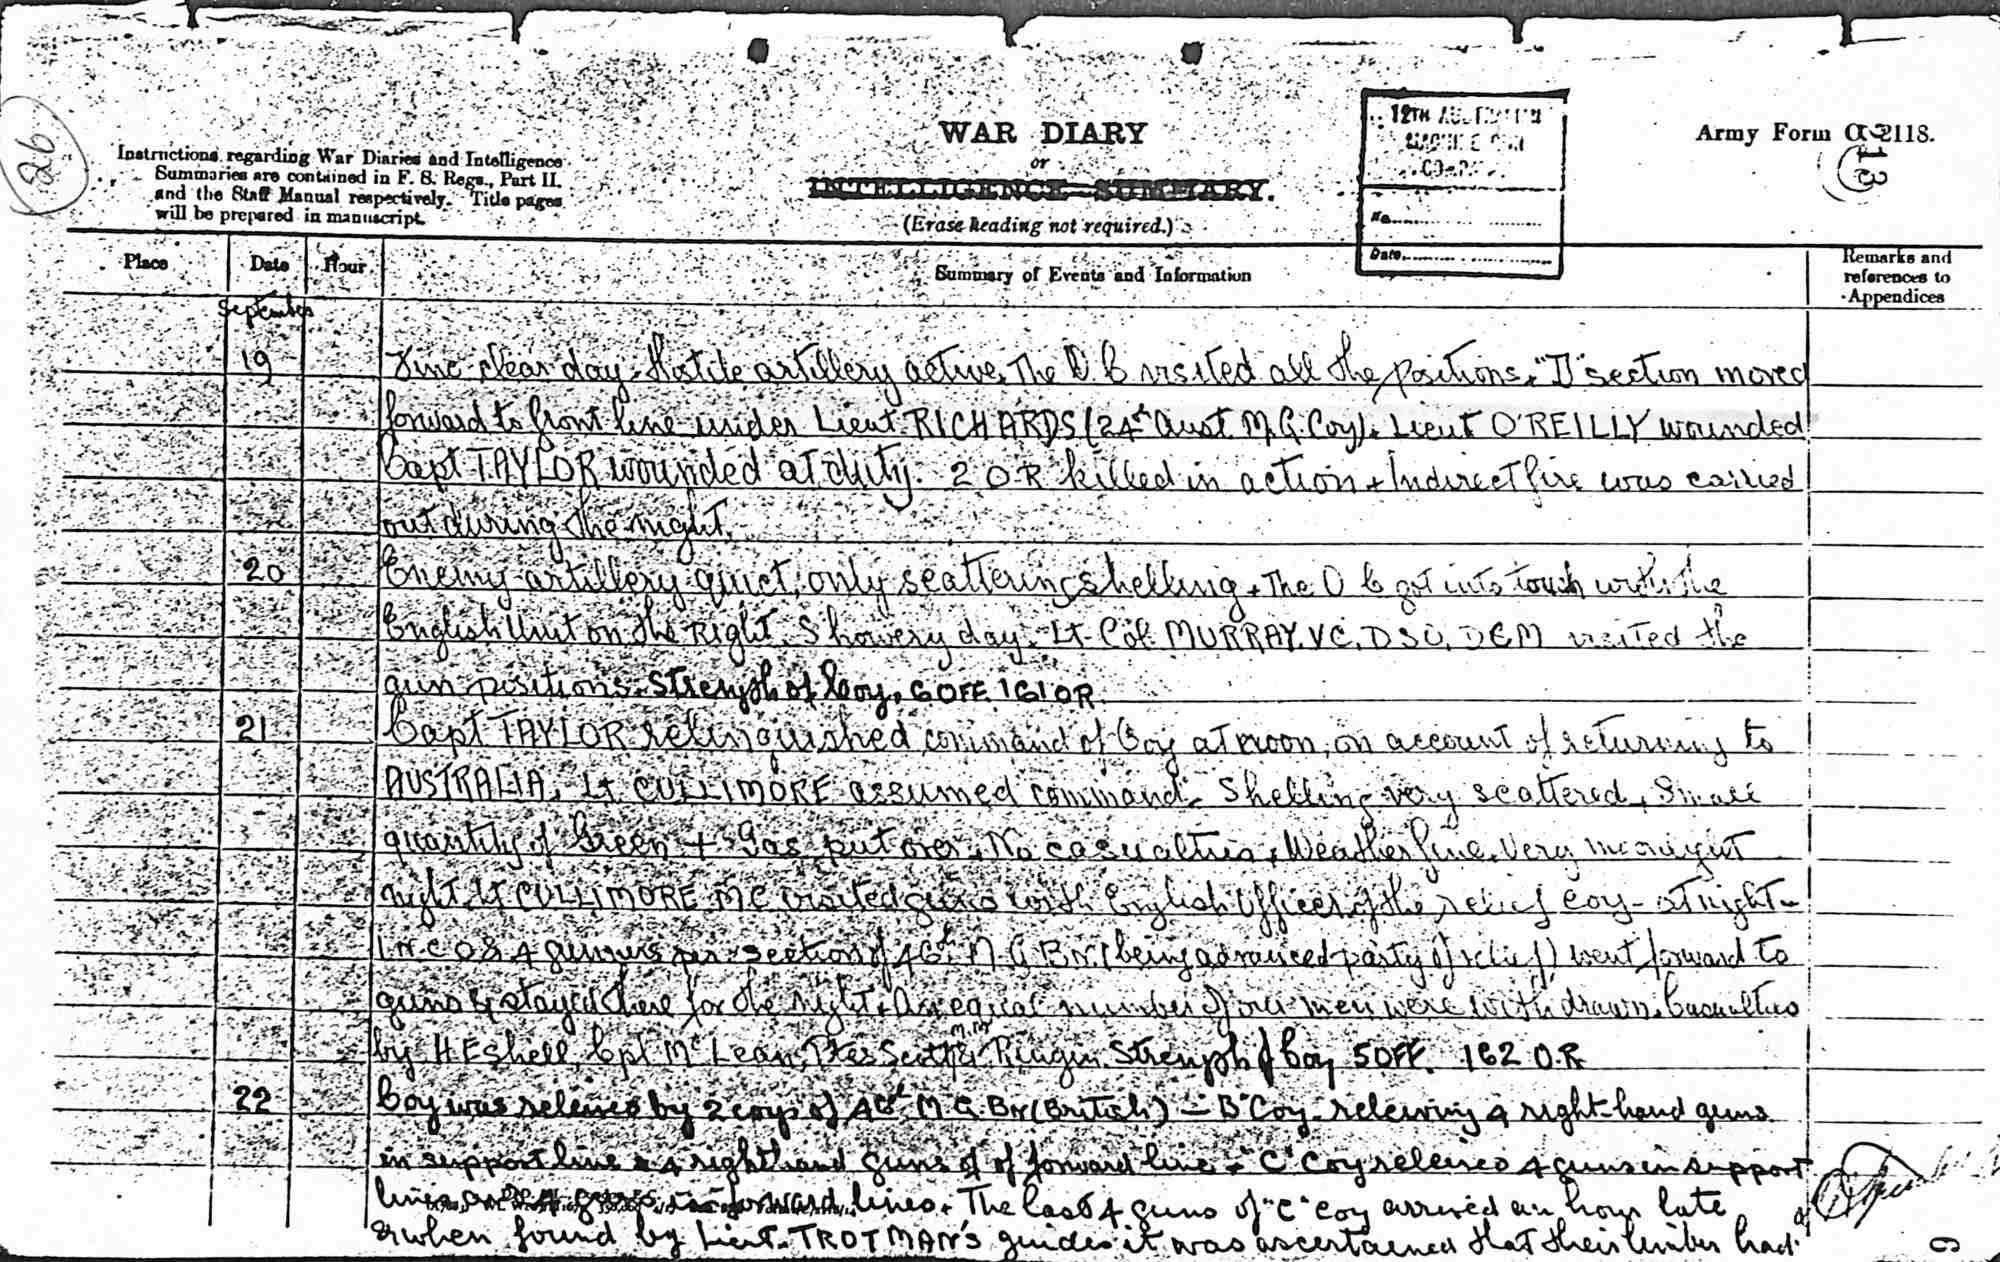 26
Instructions regarding War Diaries and Intelligence
Summaries are contained in F. S. Regs., Part II.
and the Staff Manual respectively. Title pages
will be prepared in manuscript.
WAR DIARY
or
INTELLIGENCE SUMMARY.
(Erase heading not required.)
12TH AUSTRALIAN
MACHINE GUN
No.
Date
Army Form C. 2118.
13
Place Date Hour Summary of Events and Information Remarks and references to Appendices
September
19 Fine clear day. Hostile artillery active. The O.C visited all the positions. "D" section moved
forward to front line under Lieut. RICHARDS (24th Aust. M.G. Coy). Lieut O'REILLY wounded
Capt TAYLOR wounded at duty. 2 O.R killed in action. Indirect fire was carried
out during the night.
20 Enemy artillery quiet, only scattering shelling. The O C got into touch with the
English Unit on the Right. Showery day. Lt-Col. MURRAY. VC, DSO, DCM visited the
gun positions. Strength of Coy. 6 OFF. 161 OR.
21 Capt TAYLOR relinquished command of Coy at noon, on account of returning to
AUSTRALIA. Lt CULLIMORE assumed command. Shelling very scattered. Small
quantity of Green + Gas put over. No casualties. Weather fine. Very moonlight
night. Lt CULLIMORE MC visited guns with English Officer of the relief coy - at night -
1 N.C.O & 4 gunners per section of 46th M.G. Bn. (being advanced party of relief) went forward to
guns & stayed there for the night. An equal number of our men were withdrawn. Casualties
by H E shell Cpl McLean, Ptes Scott M.M. Strength of Coy 5 OFF. 162 O.R
22 Coy was relieved by 2 coys of 46th M G. Bn (British) - "B" Coy relieving 4 right-hand guns
in support line & 4 right hand guns of of forward line. "C" Coy relieved 4 guns in support
lines and 4 guns in forward lines. The last 4 guns of "C" Coy arrived an hour late
& when found by Lieut. TROTMAN'S guides it was ascertained that their limber had